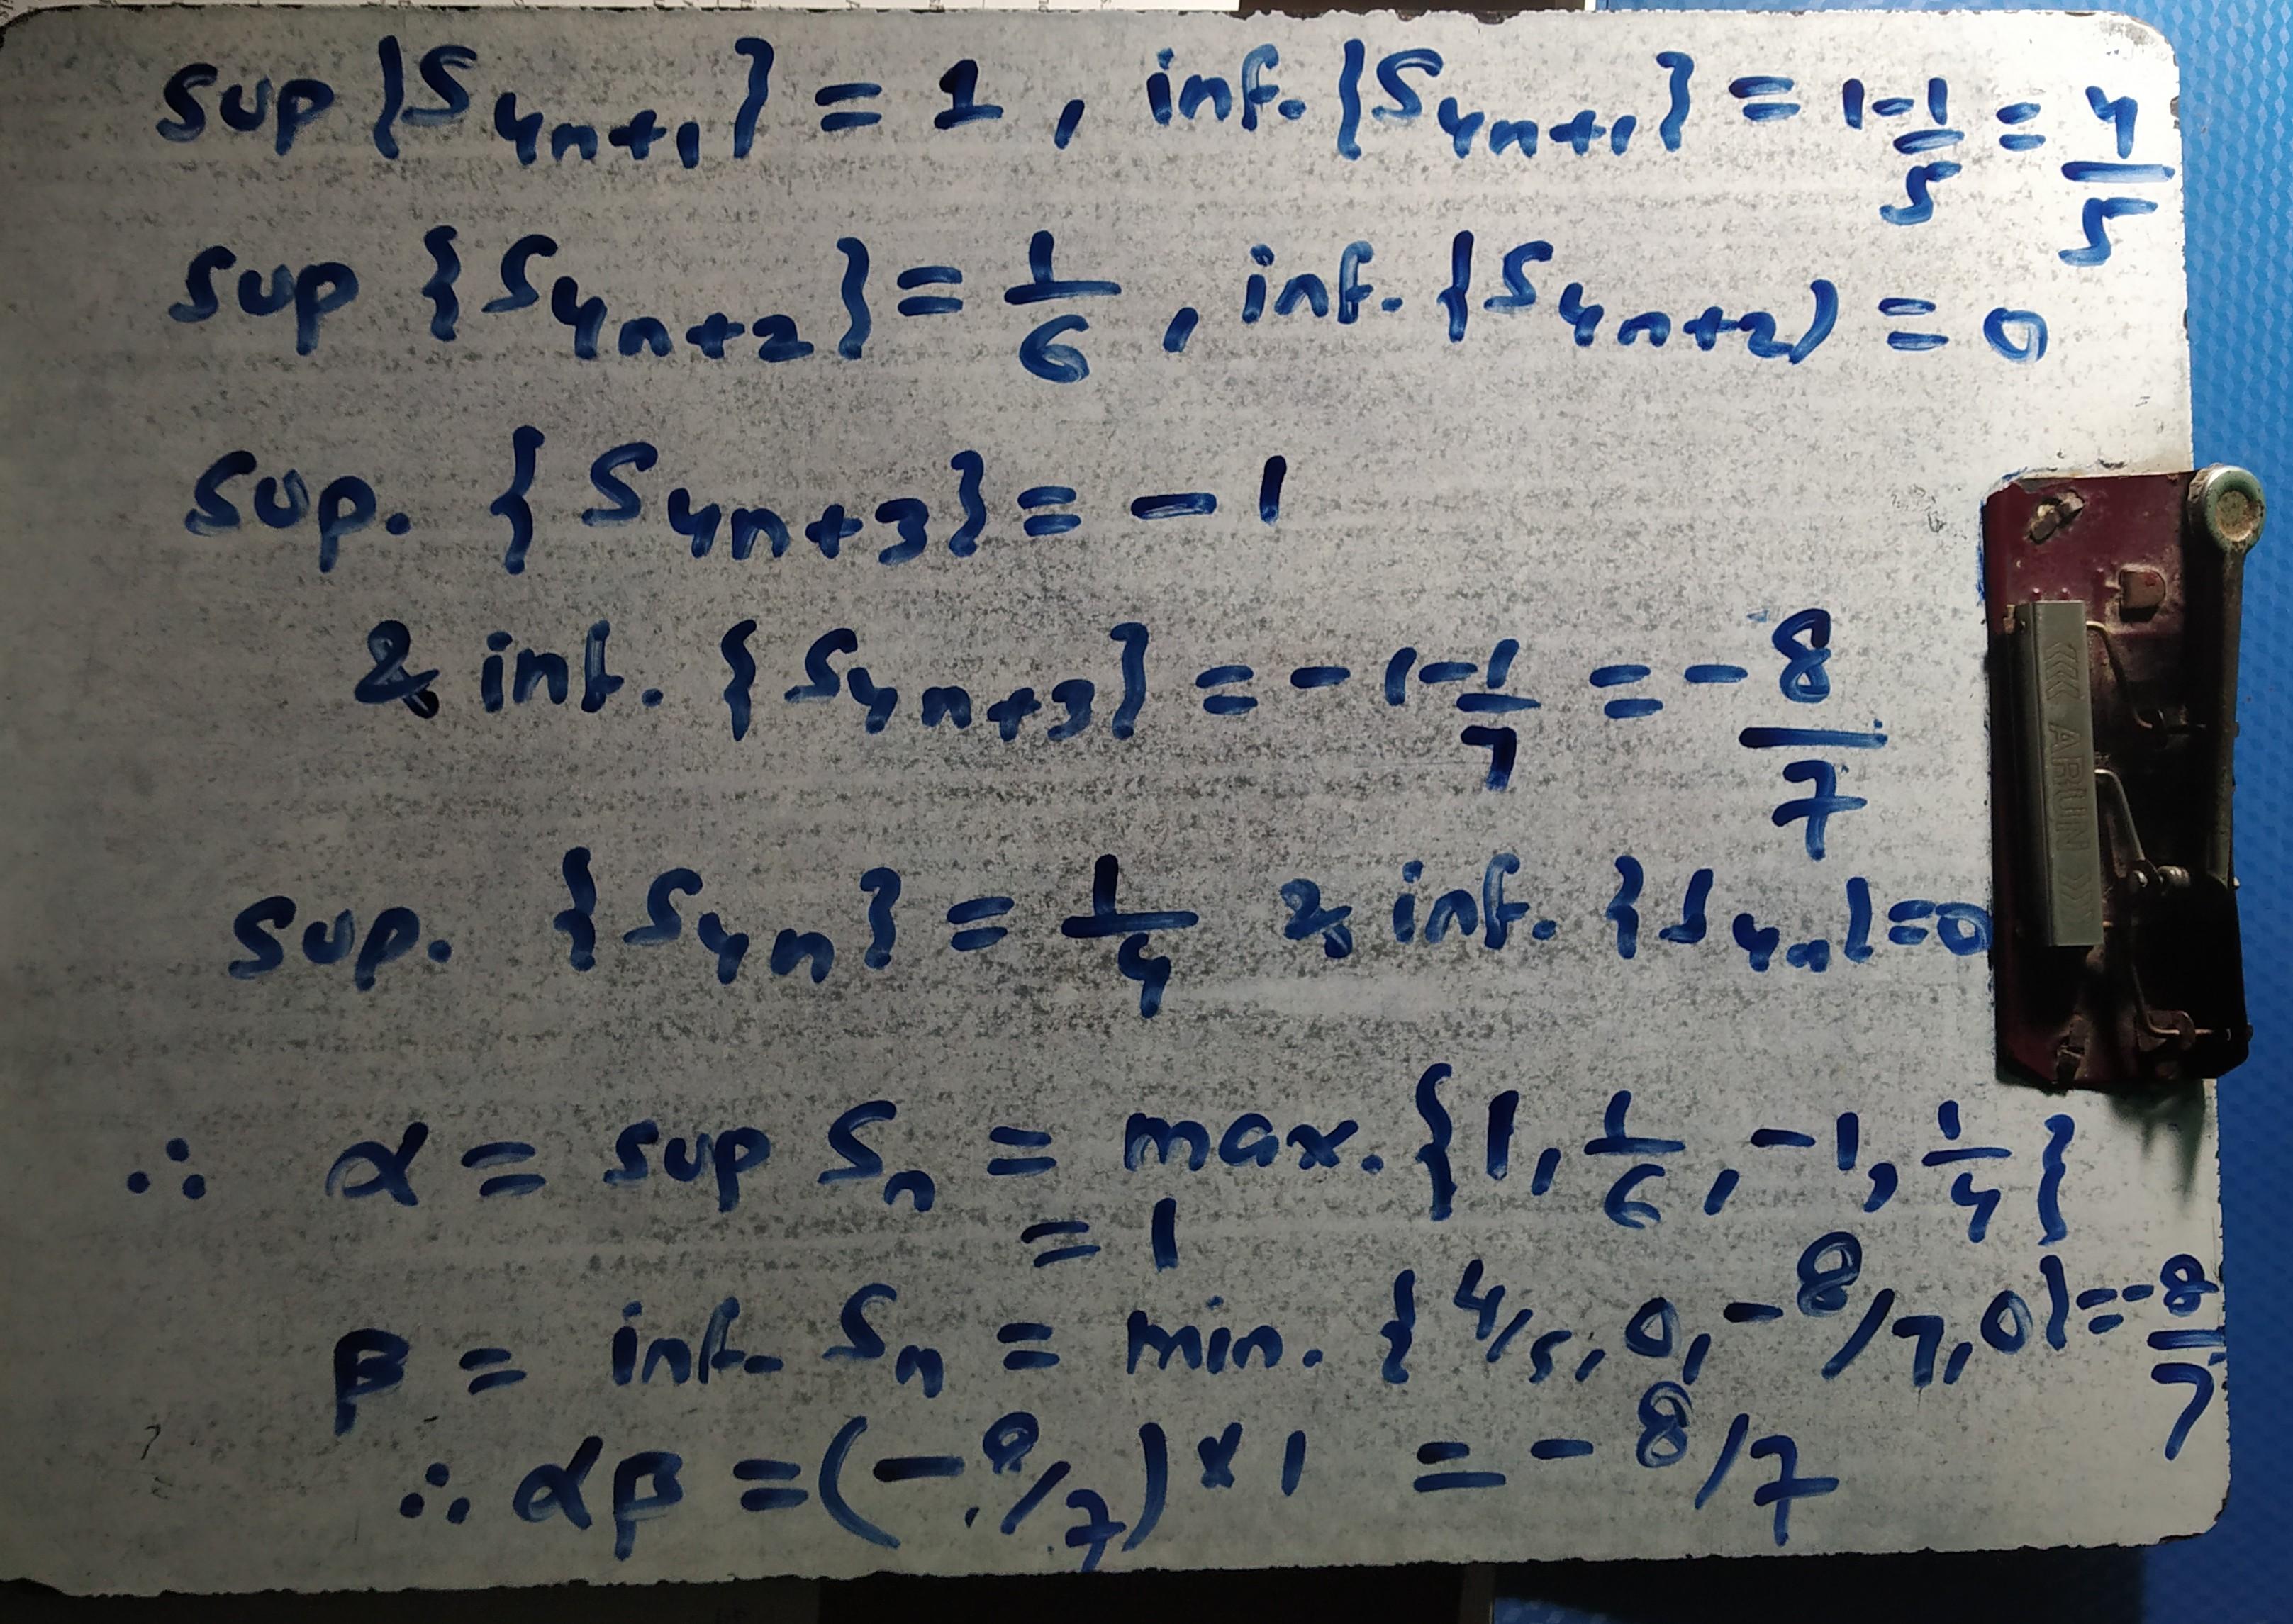 sup {S₄ₙ₊₁} = 1, inf. {S₄ₙ₊₁} = 1 - 1/5 = 4/5
sup {S₄ₙ₊₂} = 1/6, inf. {S₄ₙ₊₂) = 0
sup. {S₄ₙ₊₃} = -1
& inf. {S₄ₙ₊₃} = -1 - 1/7 = -8/7
sup. {S₄ₙ} = 1/4 & inf. {S₄ₙ} = 0
∴ α = sup Sₙ = max. {1, 1/6, -1, 1/4}
= 1
β = inf. Sₙ = min. {4/5, 0, -8/7, 0} = -8/7
∴ αβ = (-8/7) × 1 = -8/7
ARUN